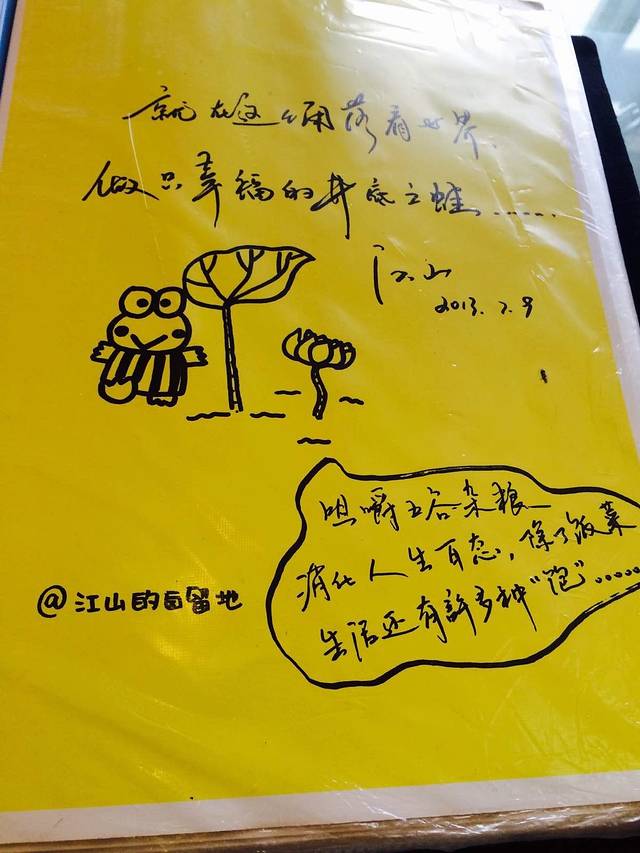 就在这个角落看世界、
做只幸福的井底之蛙......
江山
2013.7.9
咀嚼五谷杂粮
消化人生百态，除了饭菜
生活还有許多种"饱"......
@江山的自留地